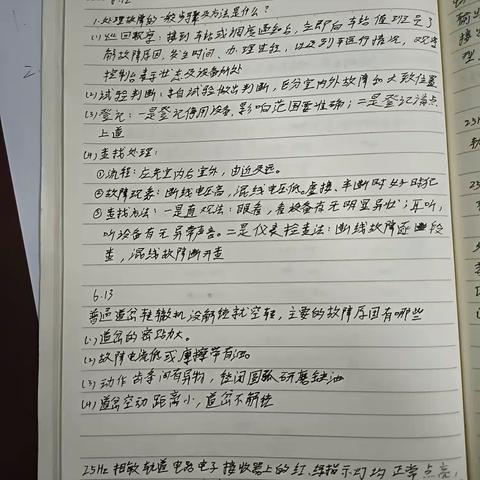 6.12
1.处理故障的一般步骤及方法是什么?
解故障原因,发生时间、办理进路,以及列车运行情况,
控制台表示状态及设备所处
(2)试验判断:亲自试验做出判断,区分室内外故障的大致位置
(3)登记:一是登记停用设备,影响范围要准确;二是登记清点
上道
(4)查找处理:
①流程:应先室内后室外,由近及远。
②故障现象:断线电压高,混线电压低。虚接、半断时好时坏
③查找方法:一是直观法:眼看,看设备有无明显异状;耳听,
听设备有无异常声音。二是仪表检查法:断线故障逐段
查,混线故障断开查
6.13
普通道岔转辙机没解锁就空转,主要的故障原因有哪些
(1)道岔的密贴力大。
(2)故障电流低或摩擦带有油。
(3)动作齿条间有异物,锁闭圆弧研磨缺油
(4)道岔空动距离小,道岔不解锁
25Hz相敏轨道电路电子接收器上的红、绿指示灯均正常点亮,